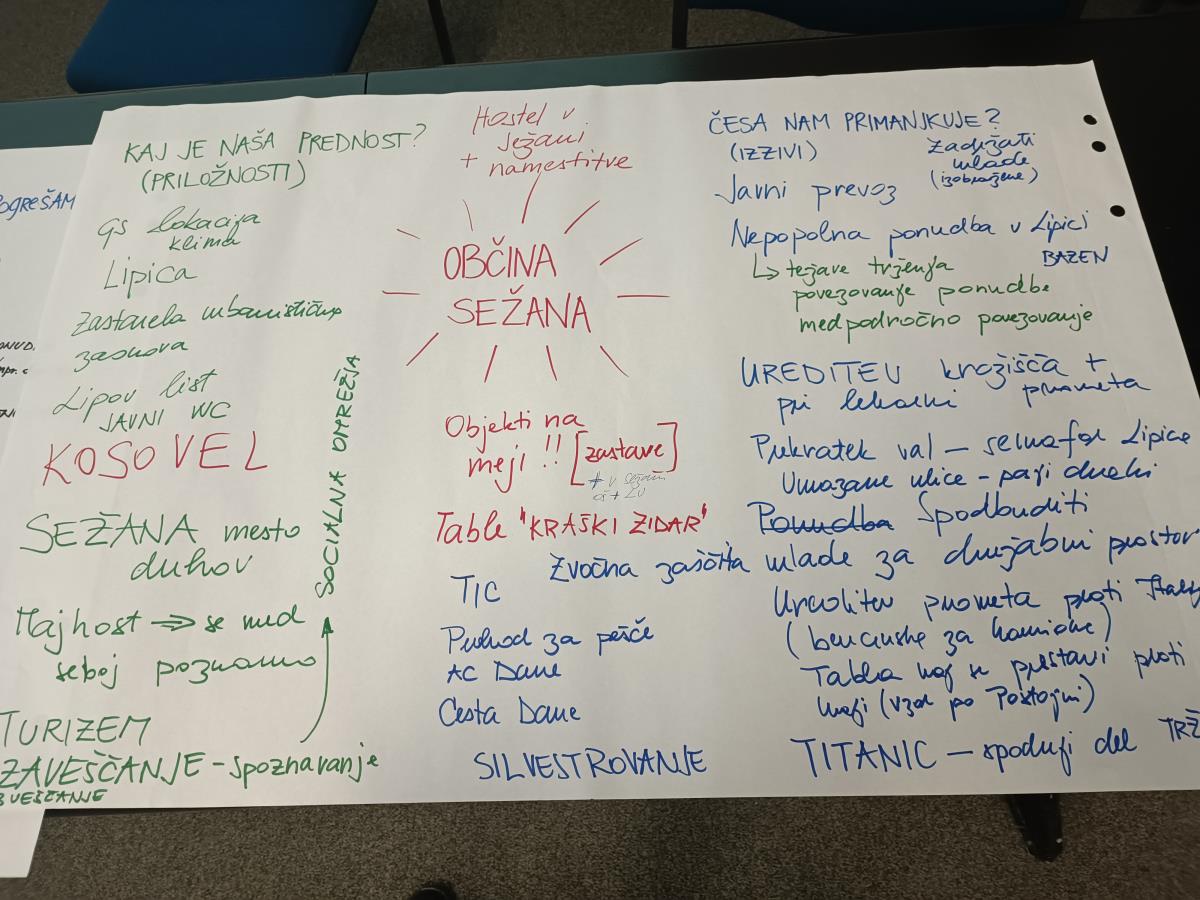 KAJ JE NAŠA PREDNOST?
(PRILOŽNOSTI)
gs lokacija
klima
Lipica
Zastarela urbanistična
zasnova
Lipov list
JAVNI WC
KOSOVEL
SEŽANA mesto
duhov
Majhost => se med
seboj poznamo
TURIZEM
ZAVEŠČANJE - spoznavanje
SOCIALNA OMREŽJA
Hostel v
Sežani
+ namestitve
OBČINA
SEŽANA
Objekti na
meji !! [zastave]
+ v Sežani
Table "KRAŠKI ZIDAR"
Zvočna zaščita
TIC
Prehod za pešče
AC Dane
Cesta Dane
SILVESTROVANJE
ČESA NAM PRIMANJKUJE?
(IZZIVI)
Zadržati
mlade
(izobražene)
Javni prevoz
Nepopolna ponudba v Lipici
BAZEN
↳ težave trženja
povezovanje ponudbe
medpodročno povezovanje
UREDITEV krožišča +
pri lekarni prometa
Prekratek val - semafor Lipice
Umazane ulice - pasji drekci
Ponudba Spodbuditi
mlade za družabni prostor
Ureditev prometa proti
(bencinske za kamione)
Tabla naj se prestavi proti
meji (vzor po Postojni)
TITANIC - spodnji del
TRŽ
OGREŠAM